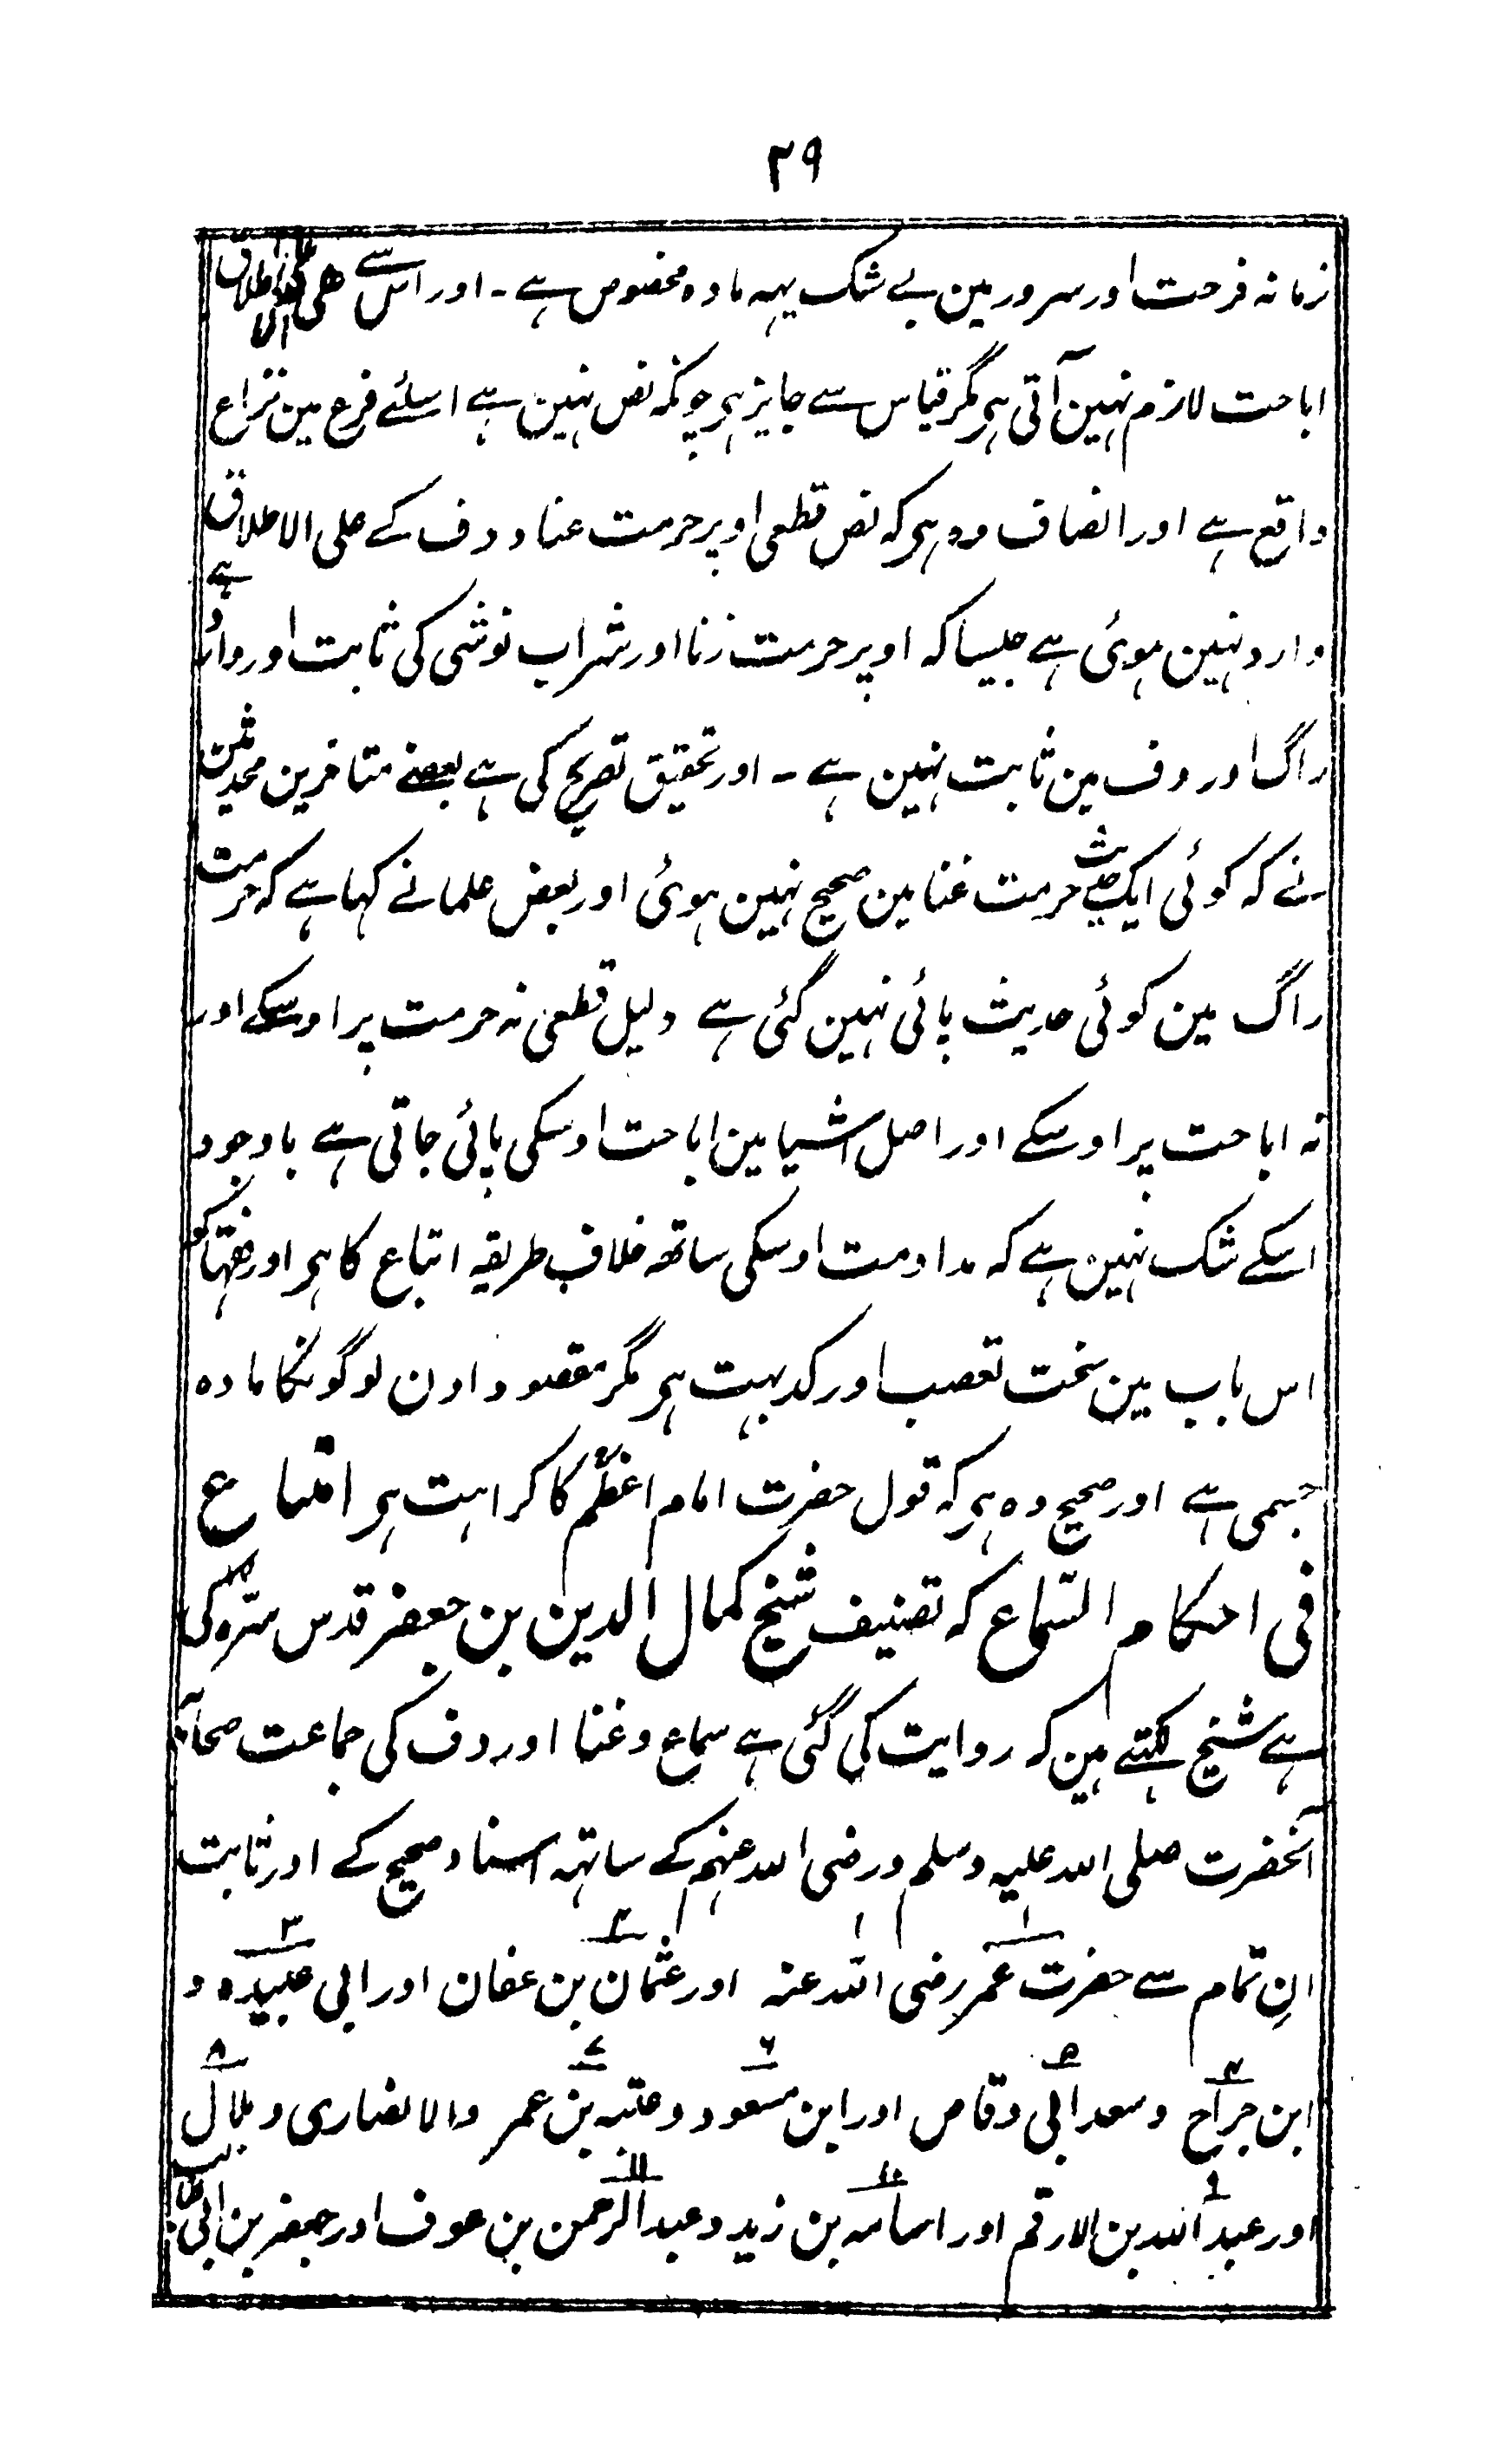 ۲۹
زمانہ فرحت اور سرور مین بے شک یہہ مادہ مخصوص ہے ۔ اور اس سے علی الاطلاق
اباحت لازم نہین آتی ہی مگر قیاس سے جایز ہی چونکہ نص نہین ہے اسلئے فرع مین نزاع
واقع ہے اور انصاف وہ ہی کہ نص قطعی اوپر حرمت غنا و دف کے علی الاطلاق
وارد نہین ہوئی ہے جیسا کہ اوپر حرمت زنا اور شراب نوشی کی ثابت اور وارد ہے
راگ اور دف مین ثابت نہین ہے ۔ اور تحقیق تصریح کی ہے بعضے متاخرین محدثین
نے کہ کوئی ایک حدیث حرمت غنا مین صحیح نہین ہوئی اور بعض علما نے کہا ہے کہ حرمت
راگ مین کوئی حدیث پائی نہین گئی ہے دلیل قطعی نہ حرمت پر اوسکے اور
نہ اباحت پر اوسکے اور اصل اشیا مین اباحت اوسکی پائی جاتی ہے باوجود
اسکے شک نہین ہے کہ مداومت اوسکی ساتھ خلاف طریقہ اتباع کا ہی اور فقہا کو
اس باب مین سخت تعصب اور کد بہت ہی مگر مقصود اون لوگونکا مادہ
جسمی ہے اور صحیح وہ ہی کہ قول حضرت امام اعظمؒ کا کراہت ہی امتناع
فی احکام السّماع کہ تصنیف شیخ کمال الدین بن جعفر قدس سرّہ کی
ہے شیخ کہتے ہین کہ روایت کی گئی ہے سماع و غنا اور دف کی جماعت صحابہ
آنحضرت صلی اللہ علیہ وسلم و رضی اللہ عنہم کے ساتہہ اسناد صحیح کے اور ثابت
اِن تمام سے حضرت عمر ۱ رضی اللہ عنہ اور عثمان بن عفان ۲ اور ابی عبیدہ ۳ و
ابن جراح ۴ و سعد ابی وقاص ۵ اور ابن مسعود ۶ و عتبہ بن عمر ۷ والانصاری و بلال ۸
اور عبد اللہ بن الارقم ۹ اور اسامہ بن زید ۱۰ و عبد الرحمن بن عوف ۱۱ اور جعفر بن ابی طالب